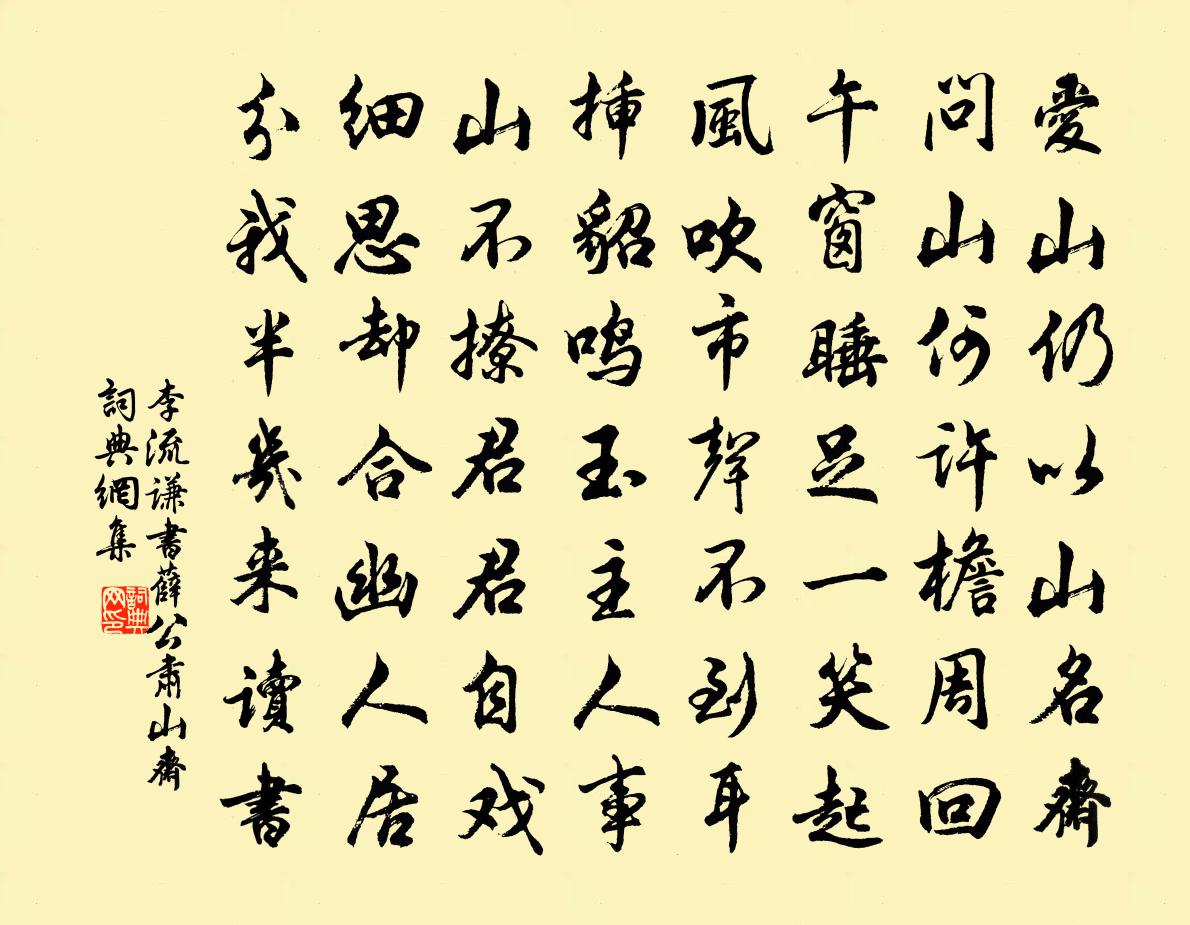 愛山仍以山名齋
問山何許檐周回
午窗睡足一笑起
風吹市聲不到耳
挿貂鳴玉主人事
山不撩君君自戏
细思却合幽人居
分我半幾来读書
李流谦書薛公肃山齋
詞典網集
詞典網印